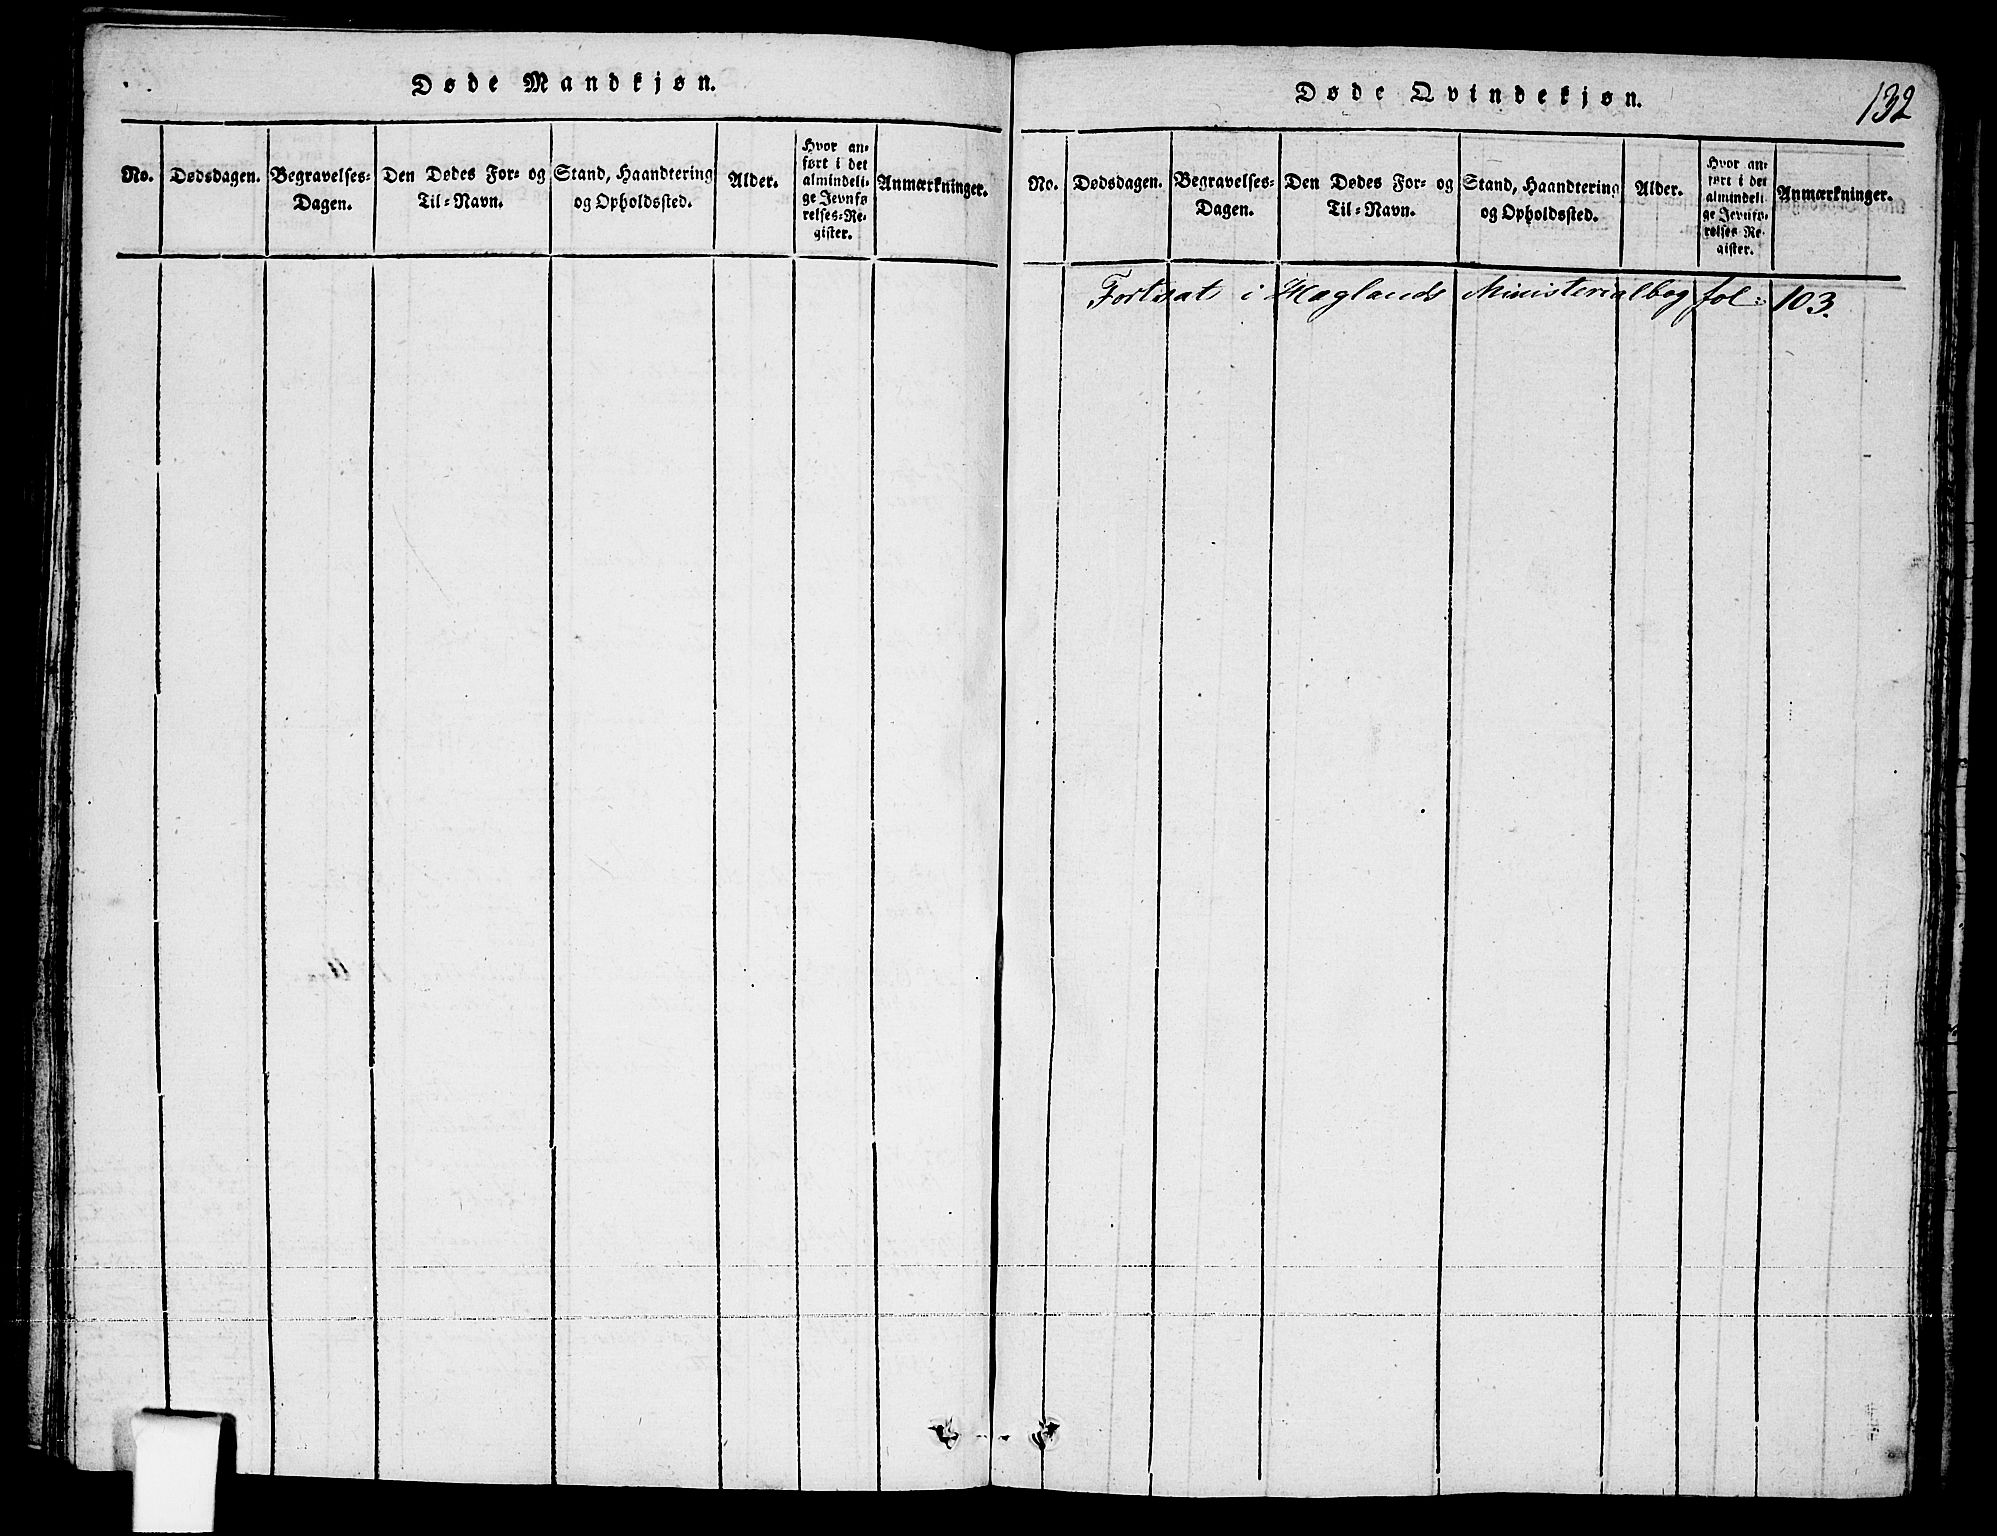 Døde Mandkjøn.
No.
Dødsdagen.
Begravelses-
Dagen.
Den Dødes For- og
Til-Navn.
Stand, Haandtering
og Opholdssted.
Alder.
Hvor an-
ført i det
almindeli-
ge Jevnfø
relses-Re-
gister.
Anmærkninger.
Døde Qvindekjøn.
132
No.
Dødsdagen.
Begravelses-
Dagen.
Den Dødes For- og
Til-Navn.
Stand, Haandtering
og Opholdssted.
Alder.
Hvor an-
ført i det
almindeli-
ge Jevnfø-
relses Re-
gister.
Anmærkninger.
Fortsat i Høglands Ministerialbog fol: 103.